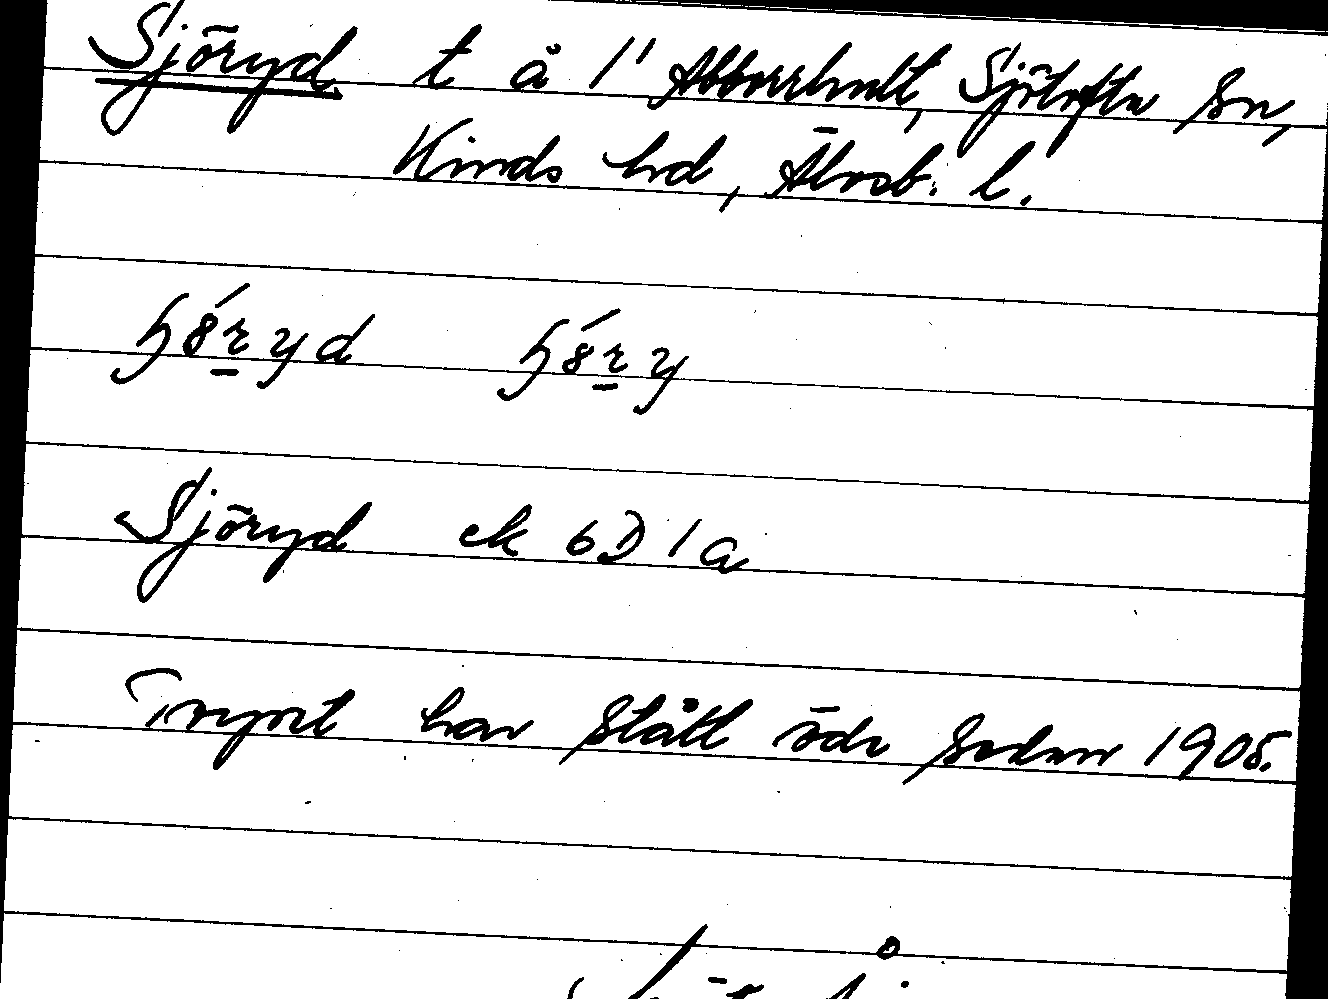 Sjöryd t å 1/1 Abborrhult, Sjötofta sn,
Kinds hd, Älvsb. l.
Sjöryd ek 6D 1a
Torpet har stått öde sedan 1905.